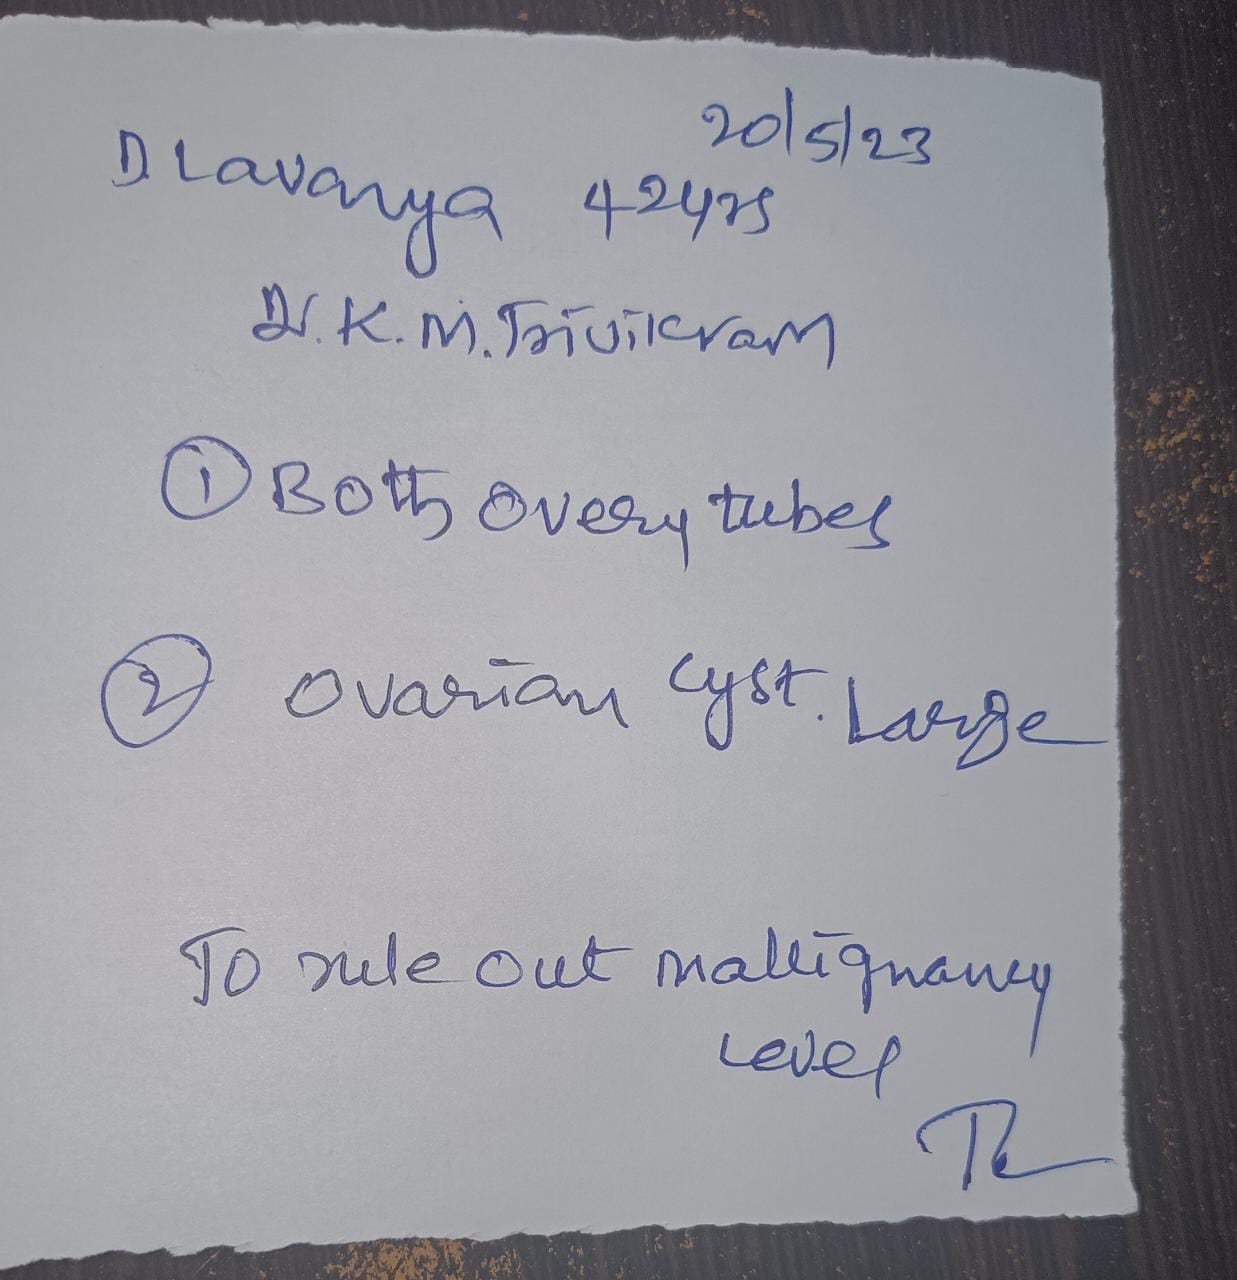 20/5/23
D Lavanya 42yrs
Dr. K. M. Trivikram
① Both overy tubes
② Ovarian cyst. Large
To rule out mallignancy
Level